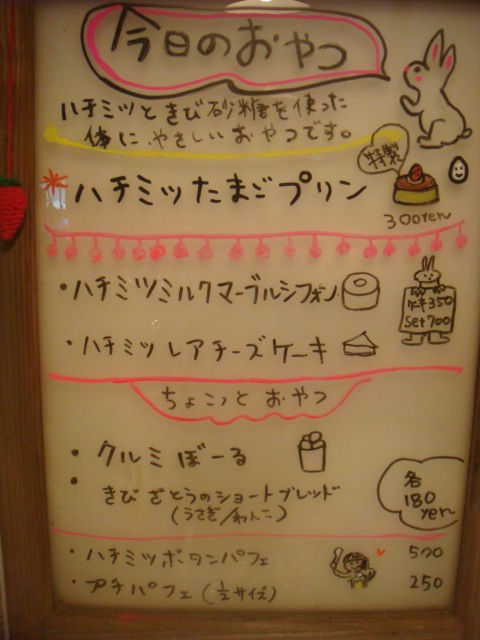 今日のおやつ
ハチミツときび砂糖を使った
体に、やさしいおやつです。
特製
ハチミツたまごプリン
300yen
・ハチミツミルクマーブルシフォン
ケーキ350
Set700
・ハチミツレアチーズケーキ
ちょこっとおやつ
・クルミぼーる
・きびざとうのショートブレッド
(うさぎ/わんこ)
各
180
yen
・ハチミツボタンパフェ 500
・プチパフェ(1/2サイズ) 250